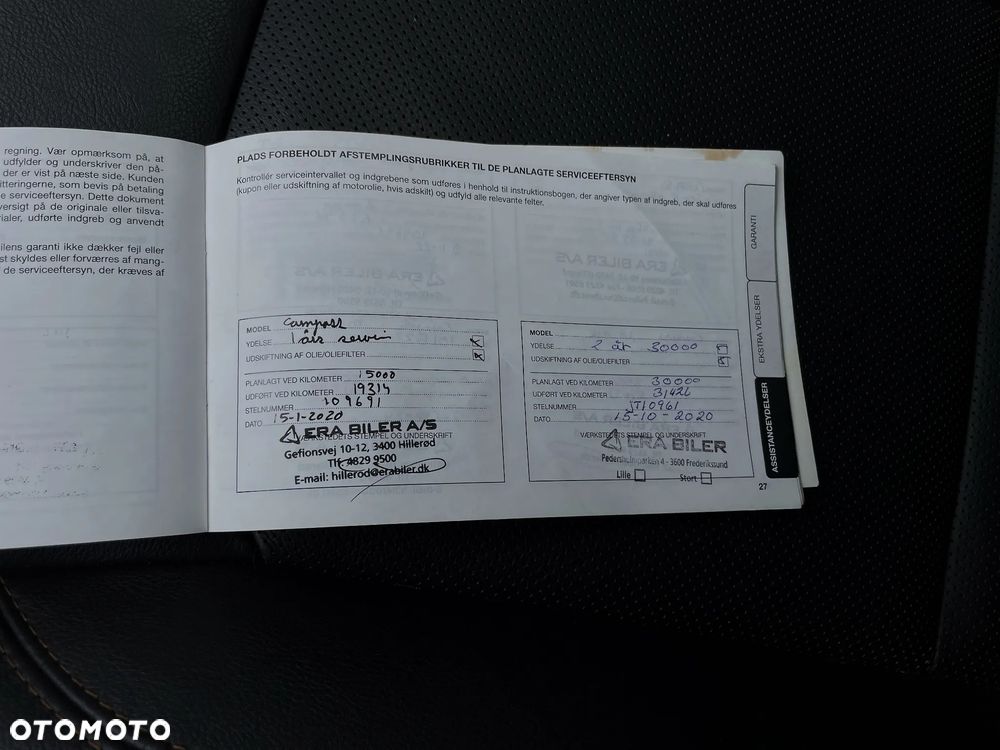 regning. Vær opmærksom på, at
udfylder og underskriver den på-
der er vist på næste side. Kunden
itteringerne, som bevis på betaling
e serviceeftersyn. Dette dokument
versigt på de originale eller tilsva-
rialer, udførte indgreb og anvendt
ilens garanti ikke dækker fejl eller
st skyldes eller forværres af mang-
de serviceeftersyn, der kræves af
PLADS FORBEHOLDT AFSTEMPLINGSRUBRIKKER TIL DE PLANLAGTE SERVICEEFTERSYN
Kontrollér serviceintervallet og indgrebene som udføres i henhold til instruktionsbogen, der angiver typen af indgreb, der skal udføres
(kupon eller udskiftning af motorolie, hvis adskilt) og udfyld alle relevante felter.
MODEL Compass
YDELSE 1 års servin
UDSKIFTNING AF OLIE/OLIEFILTER
PLANLAGT VED KILOMETER 15000
UDFØRT VED KILOMETER 19314
STELNUMMER 109691
DATO 15-1-2020
ERA BILER A/S
VÆRKSTEDETS STEMPEL OG UNDERSKRIFT
Gefionsvej 10-12, 3400 Hillerød
Tlf. 4829 9500
E-mail: hillerod@erabiler.dk
MODEL
YDELSE 2 år 30000
UDSKIFTNING AF OLIE/OLIEFILTER
PLANLAGT VED KILOMETER 30000
UDFØRT VED KILOMETER 31426
STELNUMMER
DATO 15-10-2020
VÆRKSTEDETS STEMPEL OG UNDERSKRIFT
ERA BILER
4 - 3600 Frederikssund
Lille Stort
27
GARANTI
EKSTRA YDELSER
ASSISTANCEYDELSER
OTOMOTO